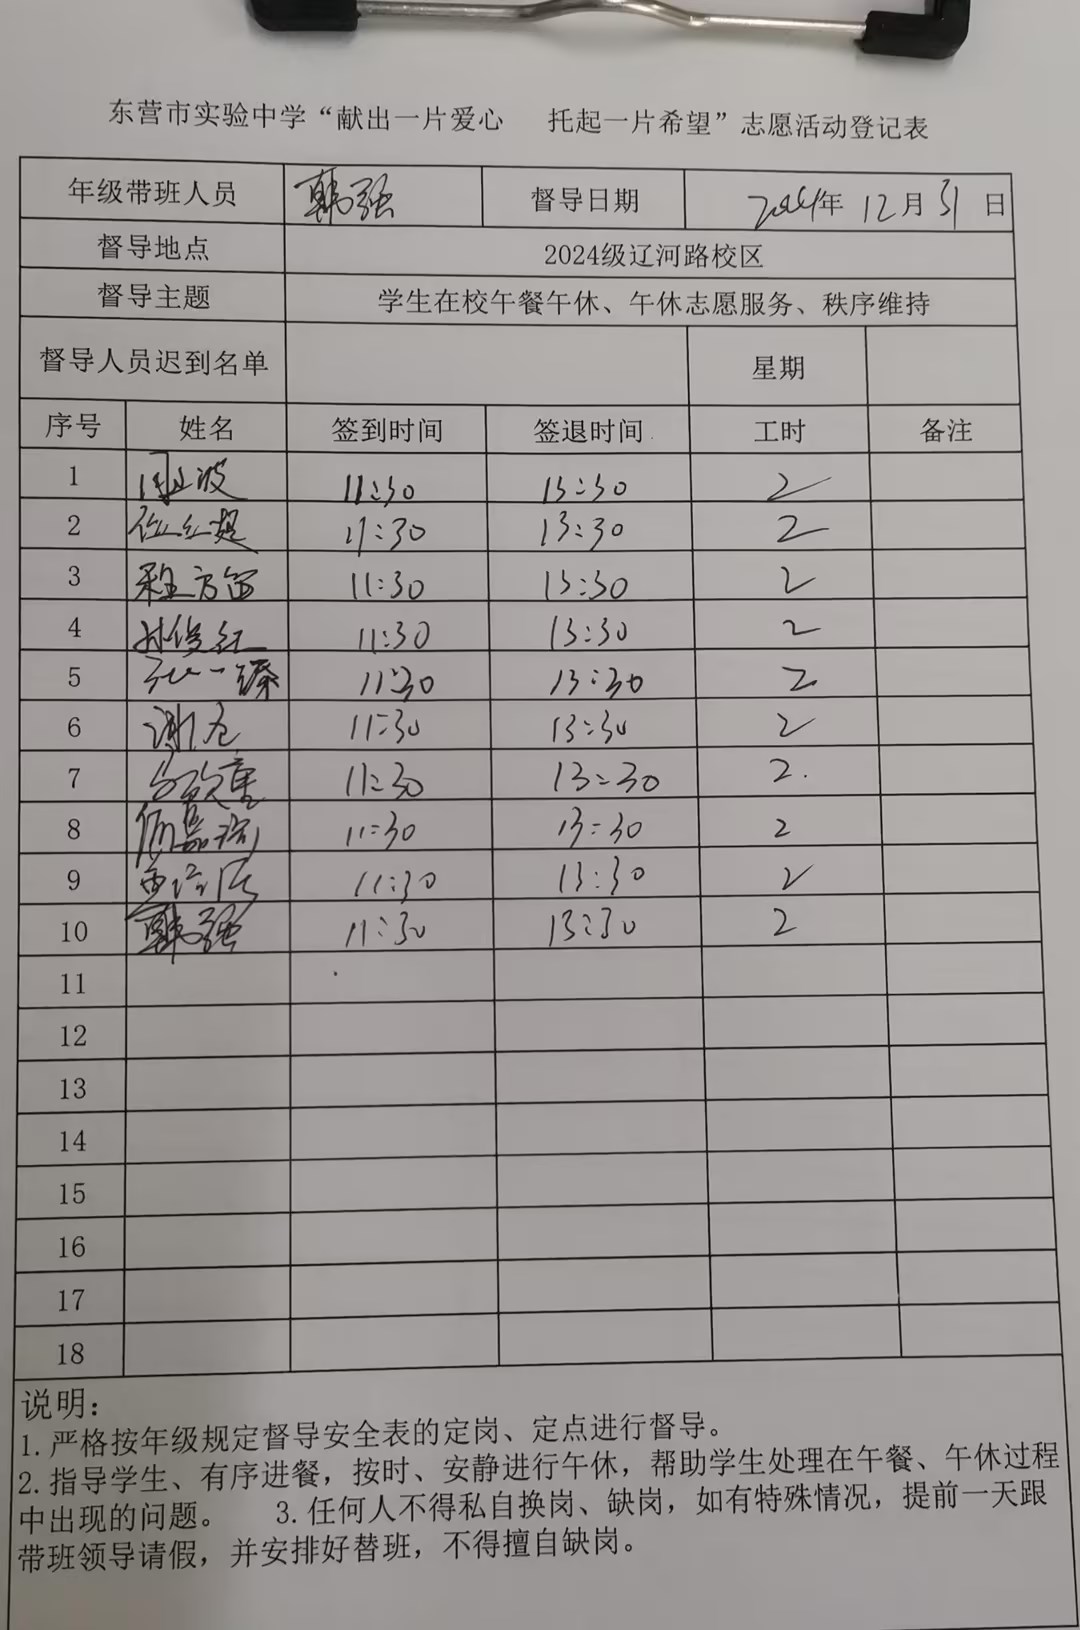 东营市实验中学“献出一片爱心 托起一片希望”志愿活动登记表
年级带班人员 韩强 督导日期 2024年 12月 31日
督导地点 2024级辽河路校区
督导主题 学生在校午餐午休、午休志愿服务、秩序维持
督导人员迟到名单 星期
序号 姓名 签到时间 签退时间 工时 备注
1 11:30 13:30 2
2 11:30 13:30 2
3 程方 11:30 13:30 2
4 孙俊红 11:30 13:30 2
5 11:30 13:30 2
6 谢 11:30 13:30 2
7 11:30 13:30 2
8 11:30 13:30 2
9 11:30 13:30 2
10 韩强 11:30 13:30 2
11
12
13
14
15
16
17
18
说明：
1.严格按年级规定督导安全表的定岗、定点进行督导。
2.指导学生、有序进餐，按时、安静进行午休，帮助学生处理在午餐、午休过程
中出现的问题。 3.任何人不得私自换岗、缺岗，如有特殊情况，提前一天跟
带班领导请假，并安排好替班，不得擅自缺岗。